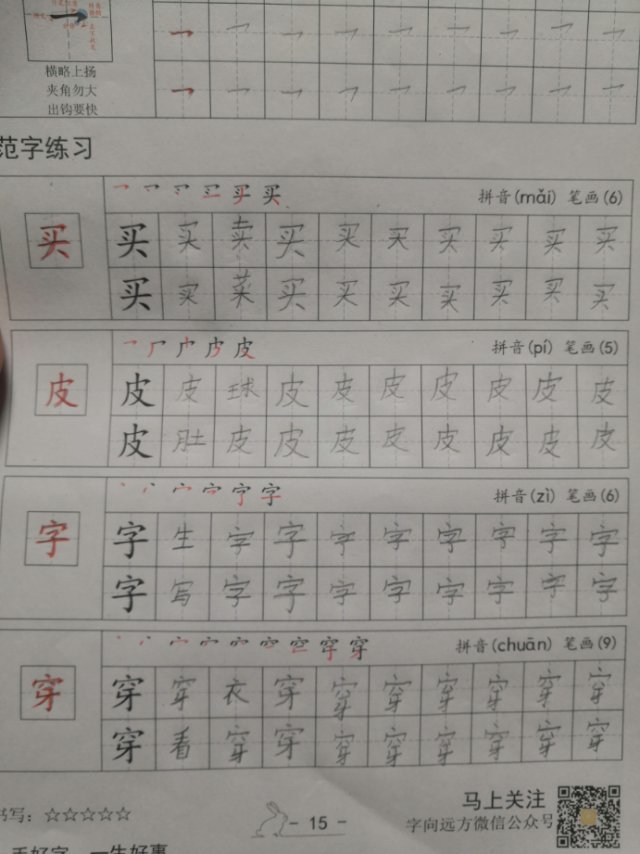 横略上扬
夹角勿大
出钩要快
范字练习
买 拼音(mǎi) 笔画(6)
买 买 买 卖 买 买 买 买 买 买 买
买 买 菜 买 买 买 买 买 买 买
皮 拼音(pí) 笔画(5)
皮 皮 皮 球 皮 皮 皮 皮 皮 皮 皮
皮 肚 皮 皮 皮 皮 皮 皮 皮 皮
字 拼音(zì) 笔画(6)
字 字 生 字 字 字 字 字 字 字 字
字 写 字 字 字 字 字 字 字 字
穿 拼音(chuān) 笔画(9)
穿 穿 穿 衣 穿 穿 穿 穿 穿 穿 穿
穿 看 穿 穿 穿 穿 穿 穿 穿 穿
书写：☆☆☆☆☆
- 15 -
马上关注
字向远方微信公众号
手好字，一生好事